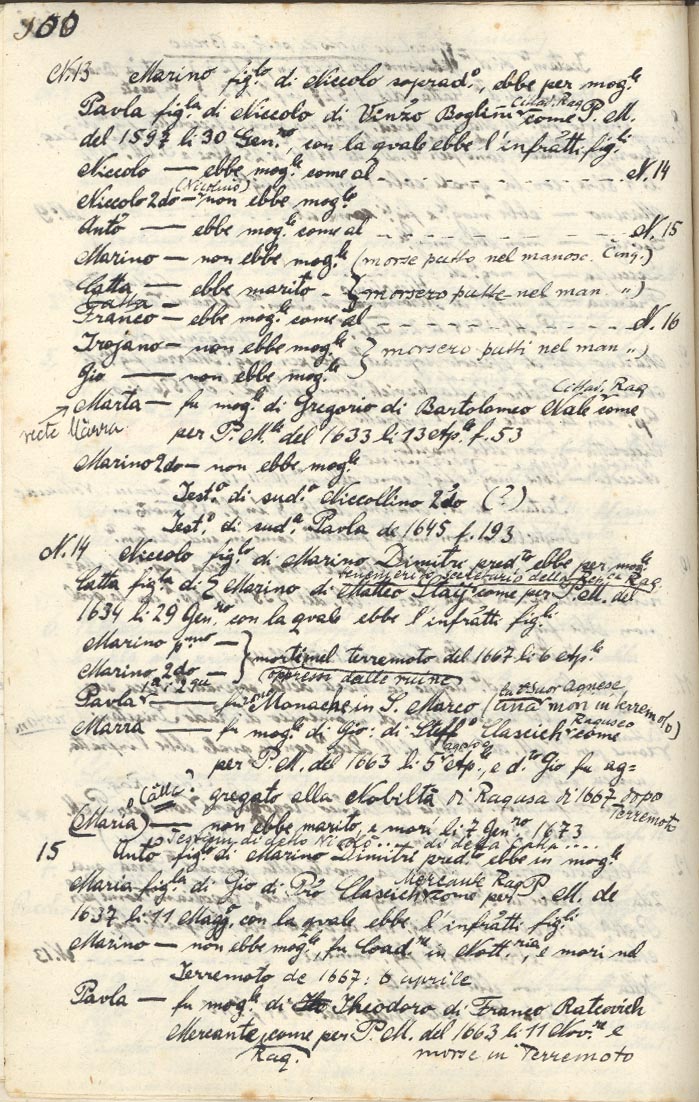 100
N.13 Marino fig.lo di Niccolo soprad.o, ebbe per mog.le
Paola fig.la di Niccolo di Vinzo Boglini Cittad. Rag come P. M.
del 1597 li 30 Gen.ro, con la qvale ebbe l'infratti fig.li
Niccolo — ebbe mog.le come al - - - - - - - - N. 14
Niccolo 2do (Nicolino) — non ebbe mog.le
Anto — ebbe mog.le come al - - - - - - - - N. 15
Marino — non ebbe mog.le (morse putto nel manosc. Cing.)
Catta — ebbe marito - (morsero putte nel man. „)
Catta —
Franco — ebbe mog.le come al - - - - - - - - N. 16
Trojano — non ebbe mog.le } morsero putti nel man „)
Gio — non ebbe mog.le
Marta — fu mog.le di Gregorio di Bartolomeo Nale Cittad. Rag come
recte Marra
per P. M.le del 1633 li 13 Ap.le f. 53
Marino 2do — non ebbe mog.le
Test.o di sud.o Niccollino 2do (?)
Test.o di sud.a Paola de 1645 f. 193
N.14 Niccolo fig.lo di Marino Dimitri pred.to ebbe per mog.le
Catta fig.la di Marino di Matteo Stay benemerito secretario della Rep.ca Rag come per P. M. del
1634 li 29 Gen.ro, con la qvale ebbe l'infratti fig.li
Marino p.mo —
Marino 2do — } morti nel terremoto del 1667 li 6 Ap.le
oppressi dalle ruine
Paola 1a i 2a — furono Monache in S. Marco (una Suor Agnese, una morì in terremoto)
Marra — fu mog.le di Gio: di Steff.o Clascich Raguseo come
per P. M. del 1663 li 5 Ap.le, e d.to Gio fu ag=
(Catta?) gregato alla Nobiltà di Ragusa di 1667 dopo Terremoto
(Maria) — non ebbe marito, e morì li 7 Gen.ro 1673
15 Anto fig.lo di Marino Dimitri pred.to ebbe in mog.le
Maria fig.la di Gio di Pio Clascich Mercante Rag come per P. M. de
1637 li 11 Magg.o, con la qvale ebbe l'infratti fig.li
Marino — non ebbe mog.le, fu Coad.re in Nott.ria, e morì nel
Terremoto de 1667: 6 aprile
Paola — fu mog.le di Theodoro di Franco Ratcovich
Mercante Rag. come per P. M. del 1663 li 11 Nov.re e
morse in Terremoto